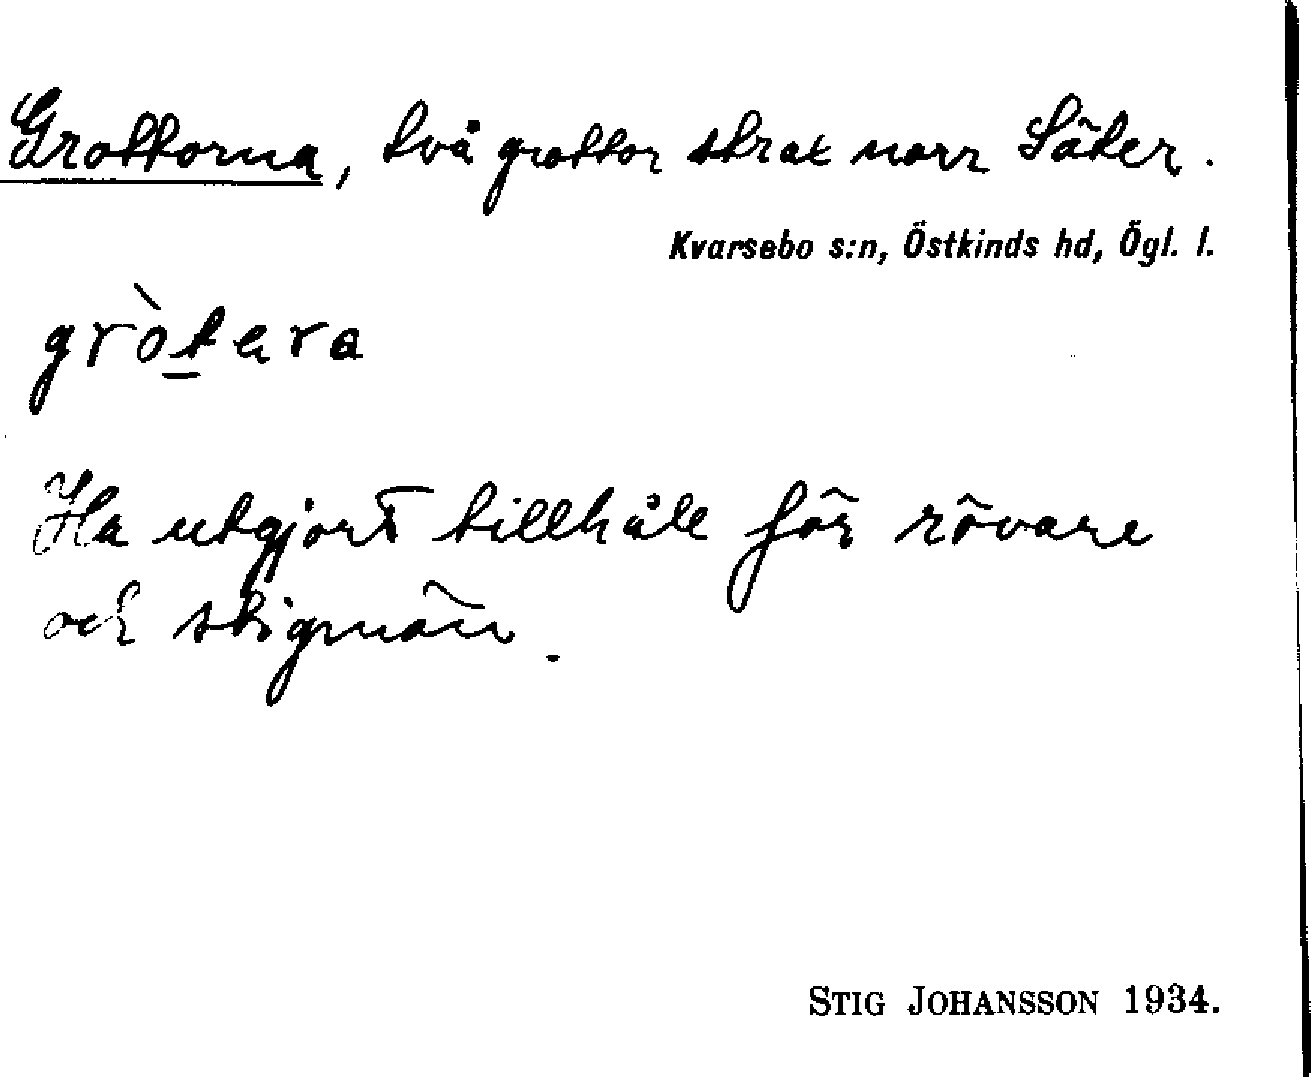 Grottorna, två grottor strax norr Säter.
Kvarsebo s:n, Östkinds hd, Ögl. l.
gròtara
Ha utgjort tillhåll för rövare
och stigmän.
STIG JOHANSSON 1934.